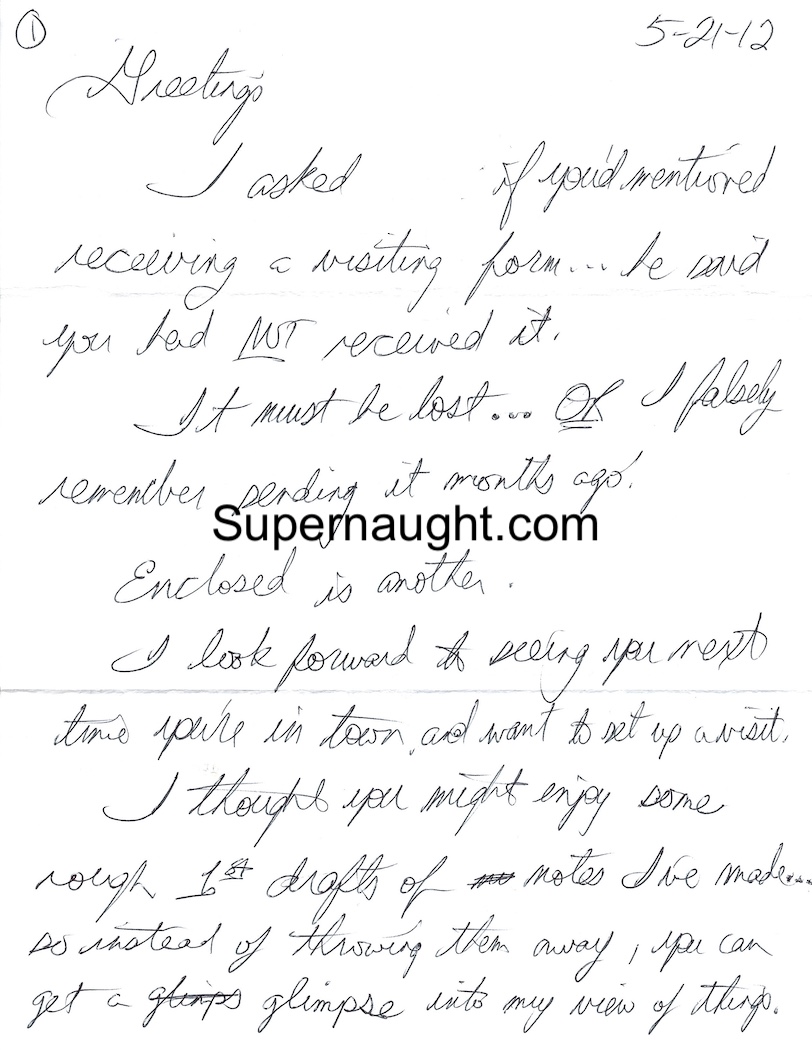 1 5-21-12
Greetings
I asked if you'd mentioned
receiving a visiting form... he said
you had NOT received it.
It must be lost... OR I falsely
remember sending it months ago.
Supernaught.com
Enclosed is another.
I look forward to seeing you next
time you're in town, and want to set up a visit.
I thought you might enjoy some
rough 1st drafts of notes I've made...
so instead of throwing them away, you can
get a glimps glimpse into my view of things.